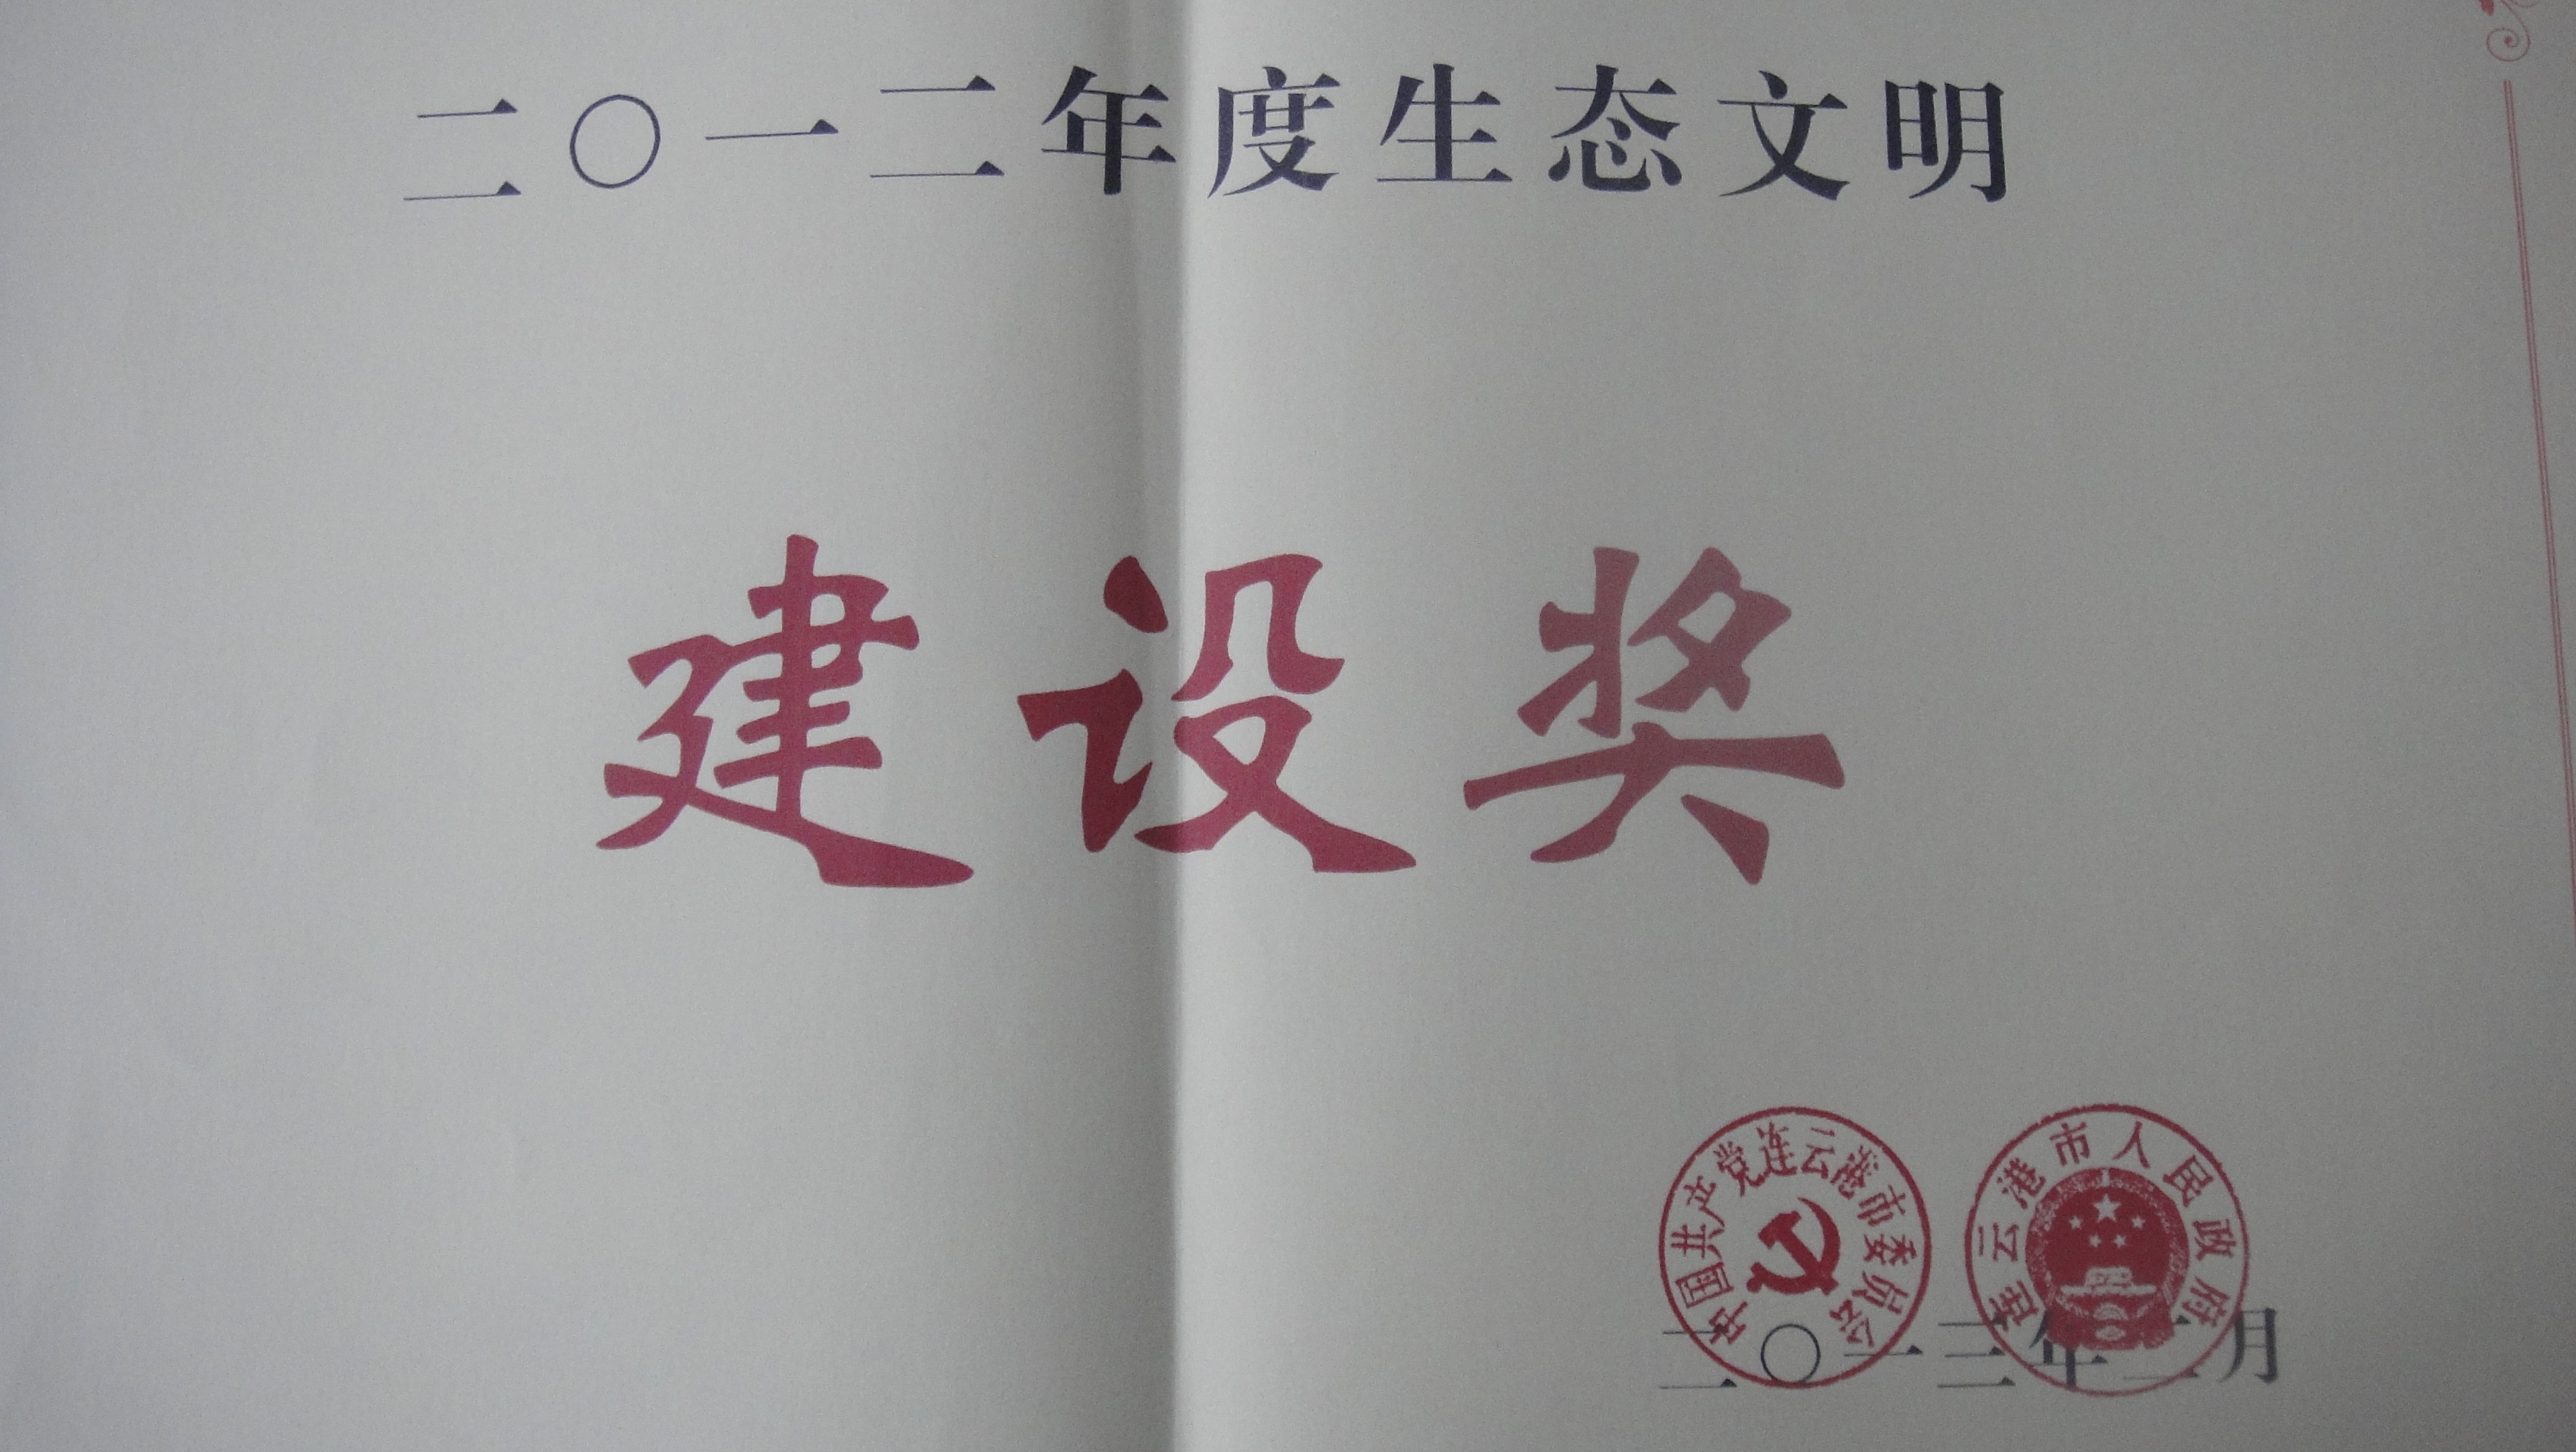 二〇一二年度生态文明
建设奖
中国共产党连云港市委员会
连云港市人民政府
二〇一三年二月